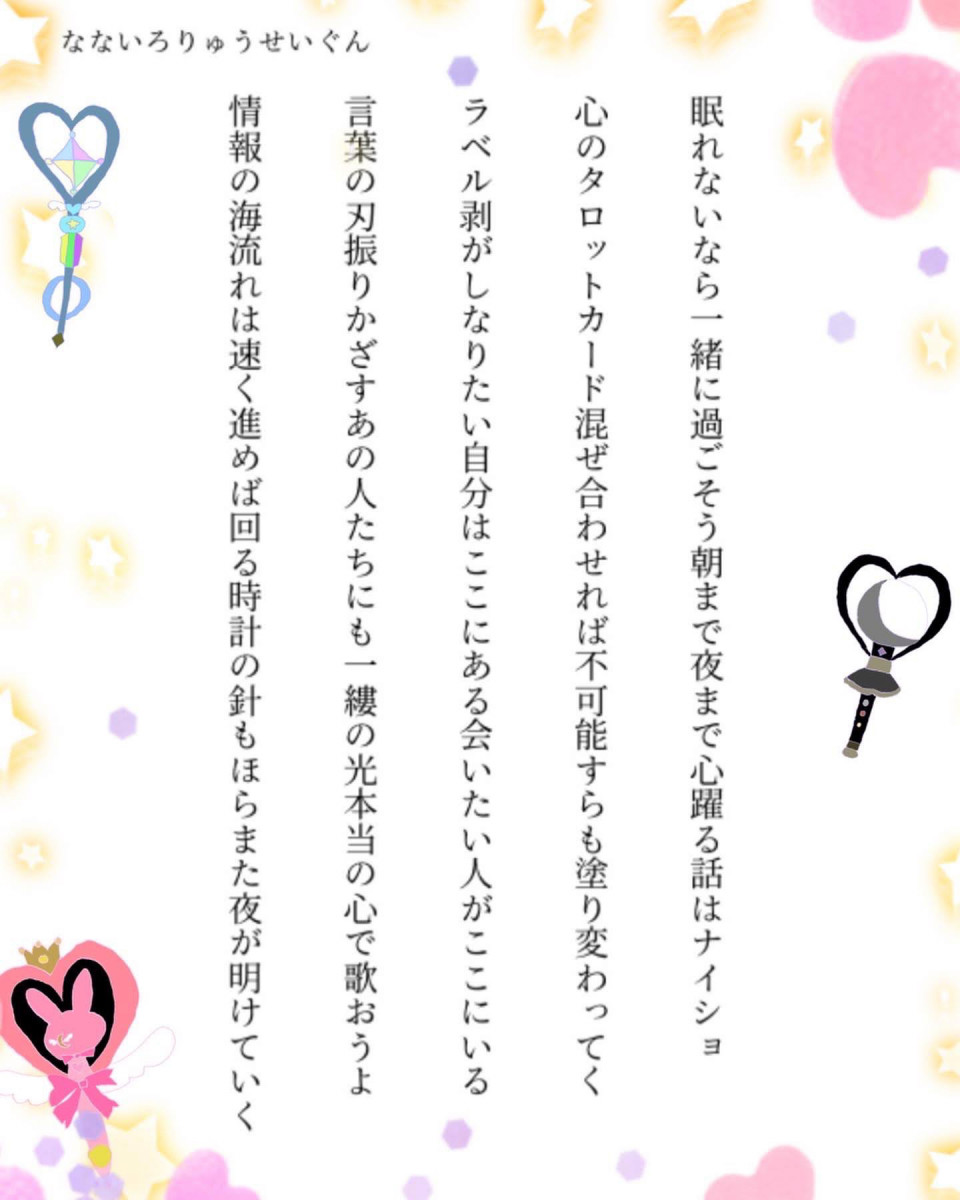 なないろりゅうせいぐん
眠れないなら一緒に過ごそう朝まで夜まで心躍る話はナイショ
心のタロットカード混ぜ合わせれば不可能すらも塗り変わってく
ラベル剥がしなりたい自分はここにある会いたい人がここにいる
言葉の刃振りかざすあの人たちにも一縷の光本当の心で歌おうよ
情報の海流れは速く進めば回る時計の針もほらまた夜が明けていく